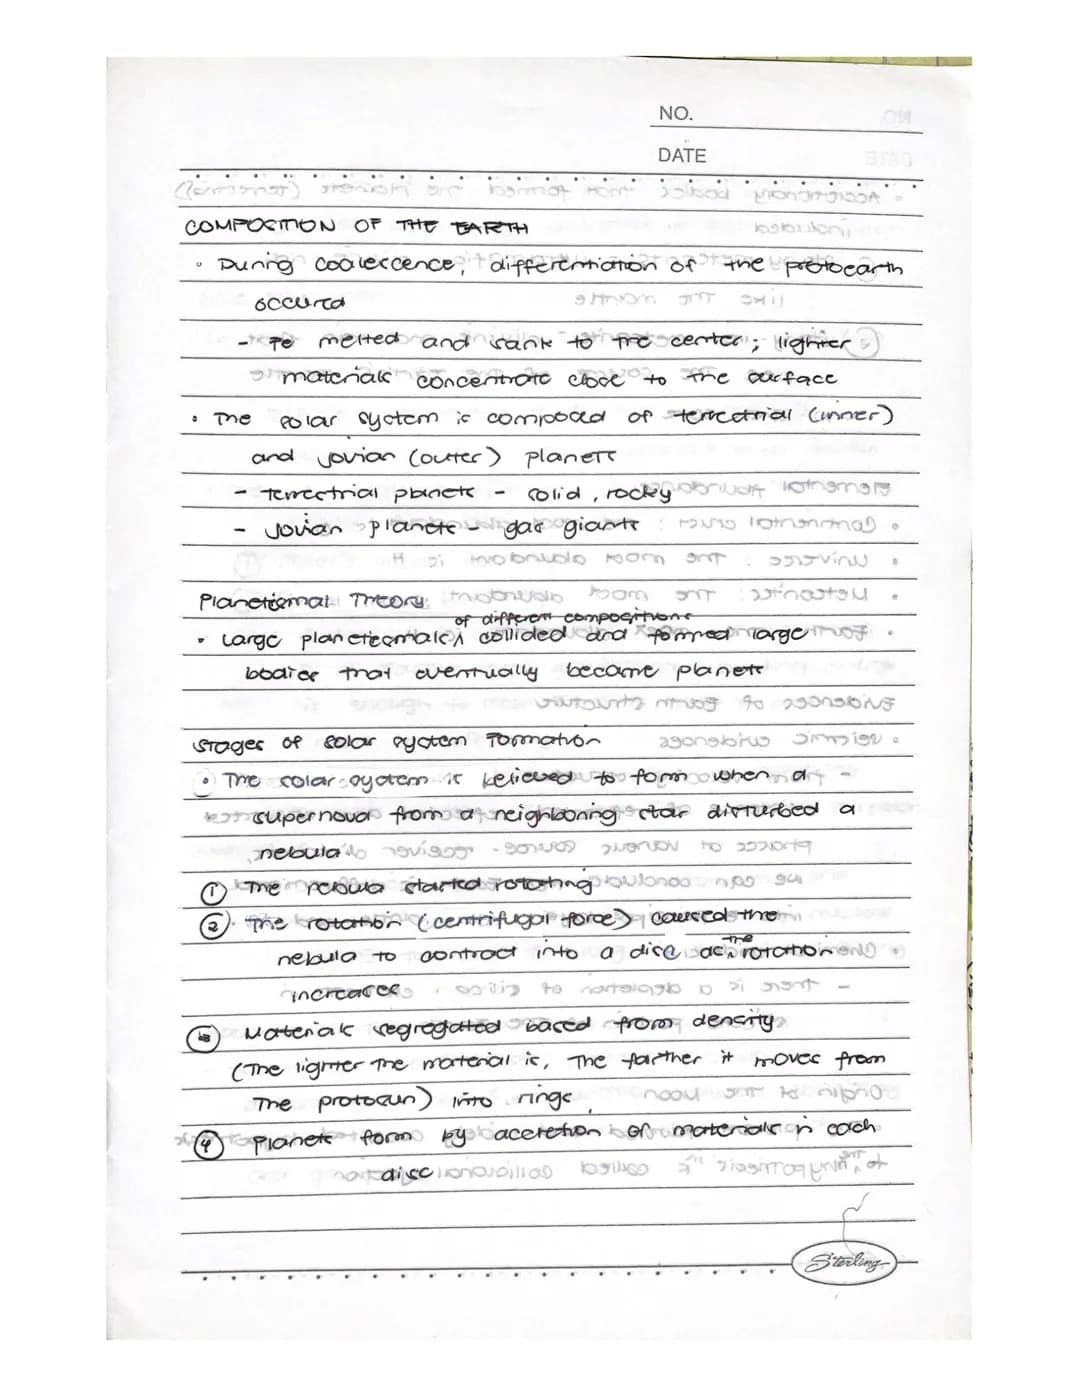 NO.
DATE
COMPOSITION OF THE EARTH
• During coalescence, differentiation of the protoearth
occured
- Fe melted and sank to the center; lighter
materials concentrate close to the surface
• The solar system is composed of terrestrial (inner)
and jovian (outer) planets
- terrestrial planets - solid, rocky
- Jovian planets - gas giants
Planetismal Theory
of different compositions
• Large planetesmals ∧ collided and formed large
bodies that eventually became planets
Stages of Solar System Formation
• The solar system is believed to form when a
supernova from a neighboring star disturbed a
nebula
① The nebula started rotating
② The rotation (centrifugal force) caused the
nebula to contract into a disc as the rotation
increases
③ Materials segregated based from density
(The lighter the material is, the farther it moves from
the protosun) into rings
④ Planets form by accretion of materials in each
disc
Sterling